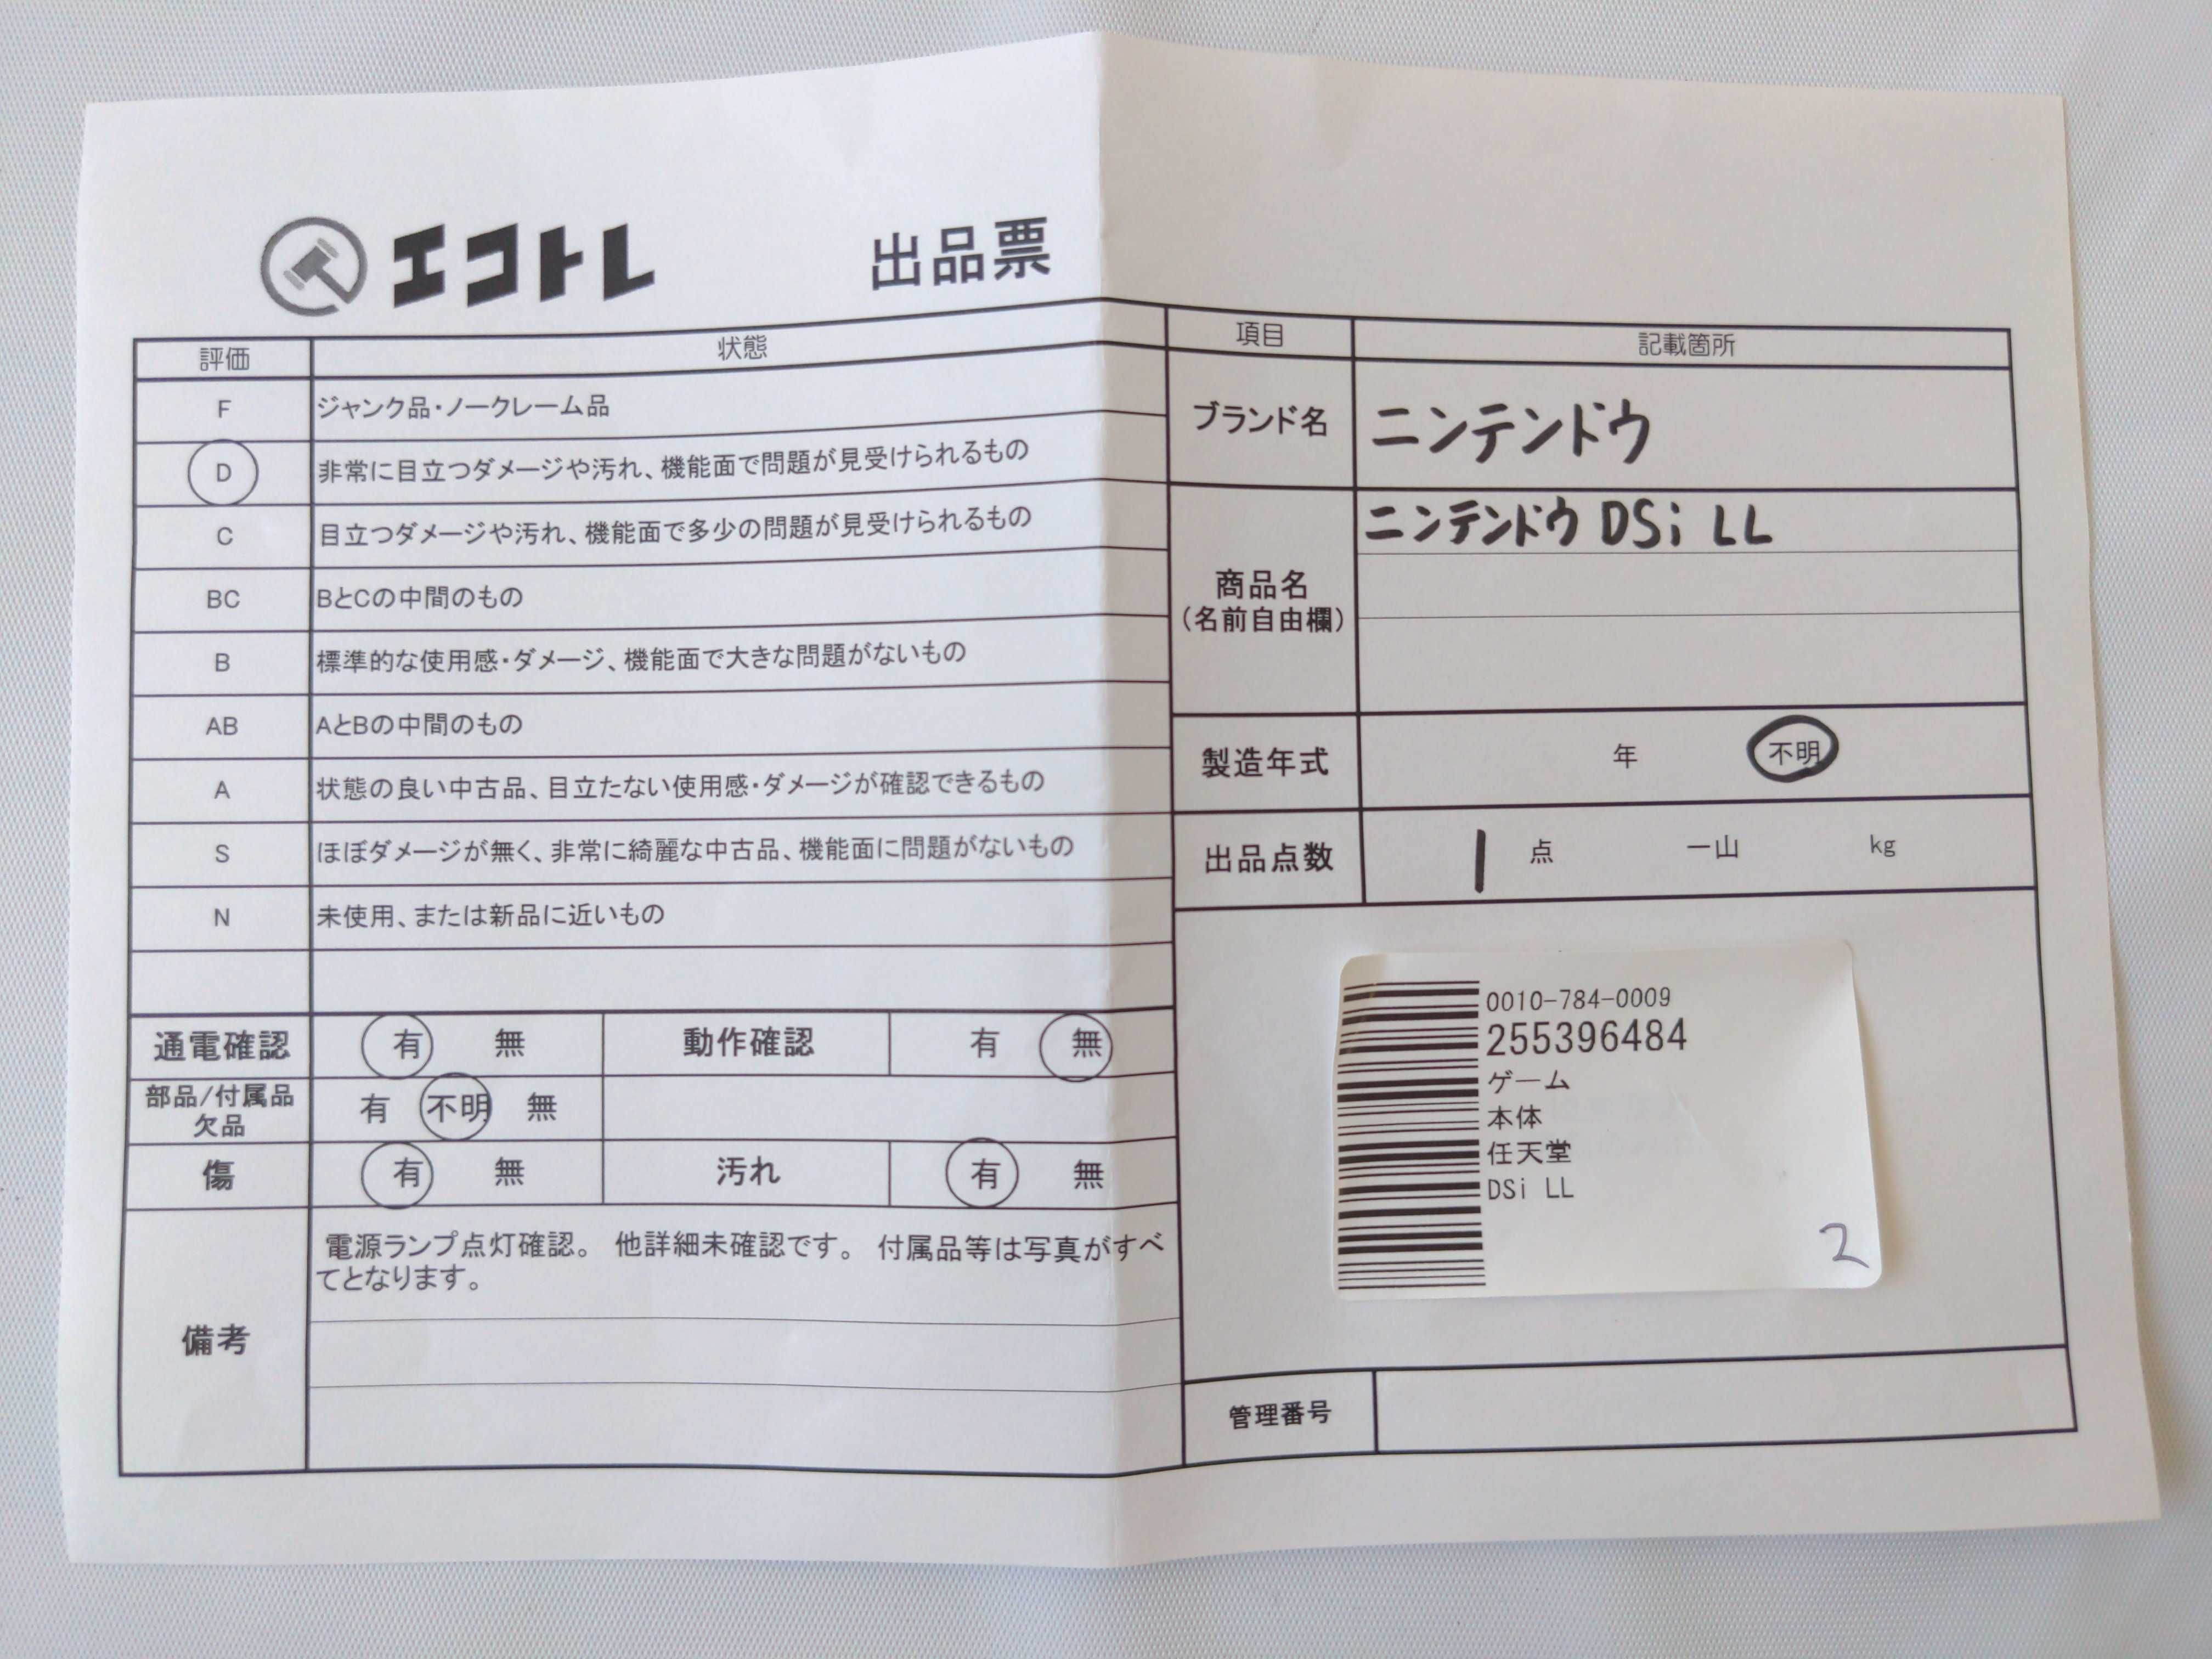 エコトレ 出品票
評価 状態
F ジャンク品・ノークレーム品
D 非常に目立つダメージや汚れ、機能面で問題が見受けられるもの
C 目立つダメージや汚れ、機能面で多少の問題が見受けられるもの
BC BとCの中間のもの
B 標準的な使用感・ダメージ、機能面で大きな問題がないもの
AB AとBの中間のもの
A 状態の良い中古品、目立たない使用感・ダメージが確認できるもの
S ほぼダメージが無く、非常に綺麗な中古品、機能面に問題がないもの
N 未使用、または新品に近いもの
通電確認 有 無 動作確認 有 無
部品/付属品
欠品
有 不明 無
傷 有 無 汚れ 有 無
備考
電源ランプ点灯確認。 他詳細未確認です。 付属品等は写真がすべ
てとなります。
項目 記載箇所
ブランド名 ニンテンドウ
商品名
(名前自由欄)
ニンテンドウ DSi LL
製造年式 年 不明
出品点数 1 点 一山 kg
0010-784-0009
255396484
ゲーム
本体
任天堂
DSi LL
2
管理番号